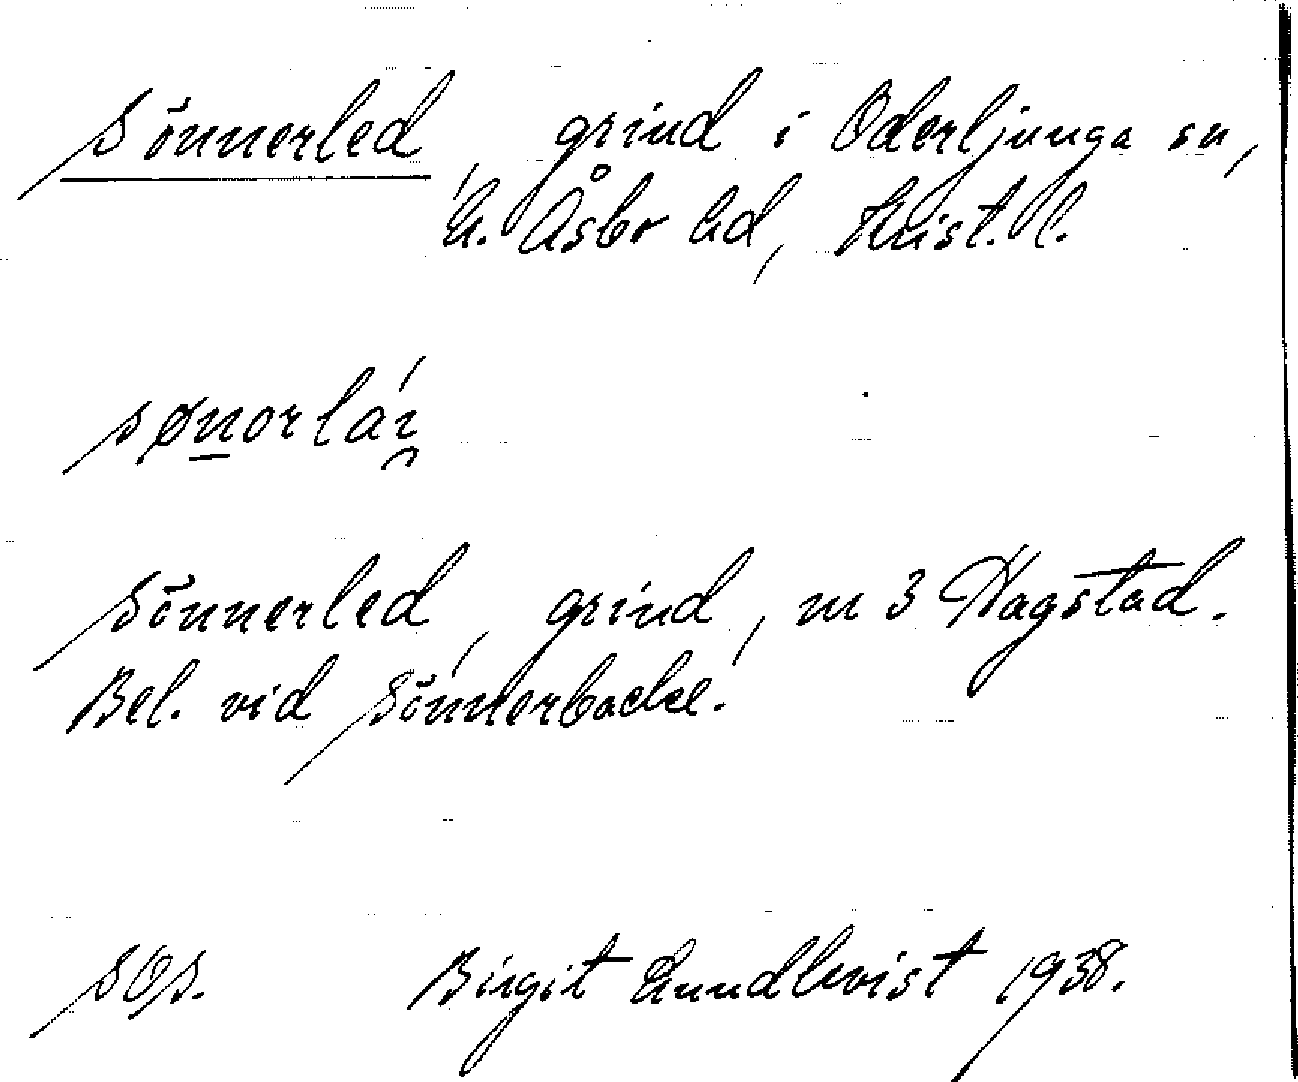 Sönnerled, grind i Oderljunga sn,
N. Åsbo hd, Krist. l.
Sönnerled, grind, nr 3 Hagstad.
Bel. vid Sönnerbacke.
SOS. Birgit Lundkvist 1938.